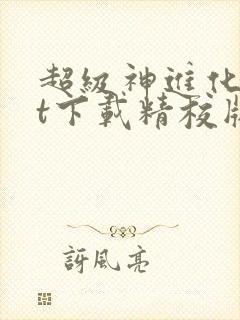 超級神進化
t下載精校版
訝風亮